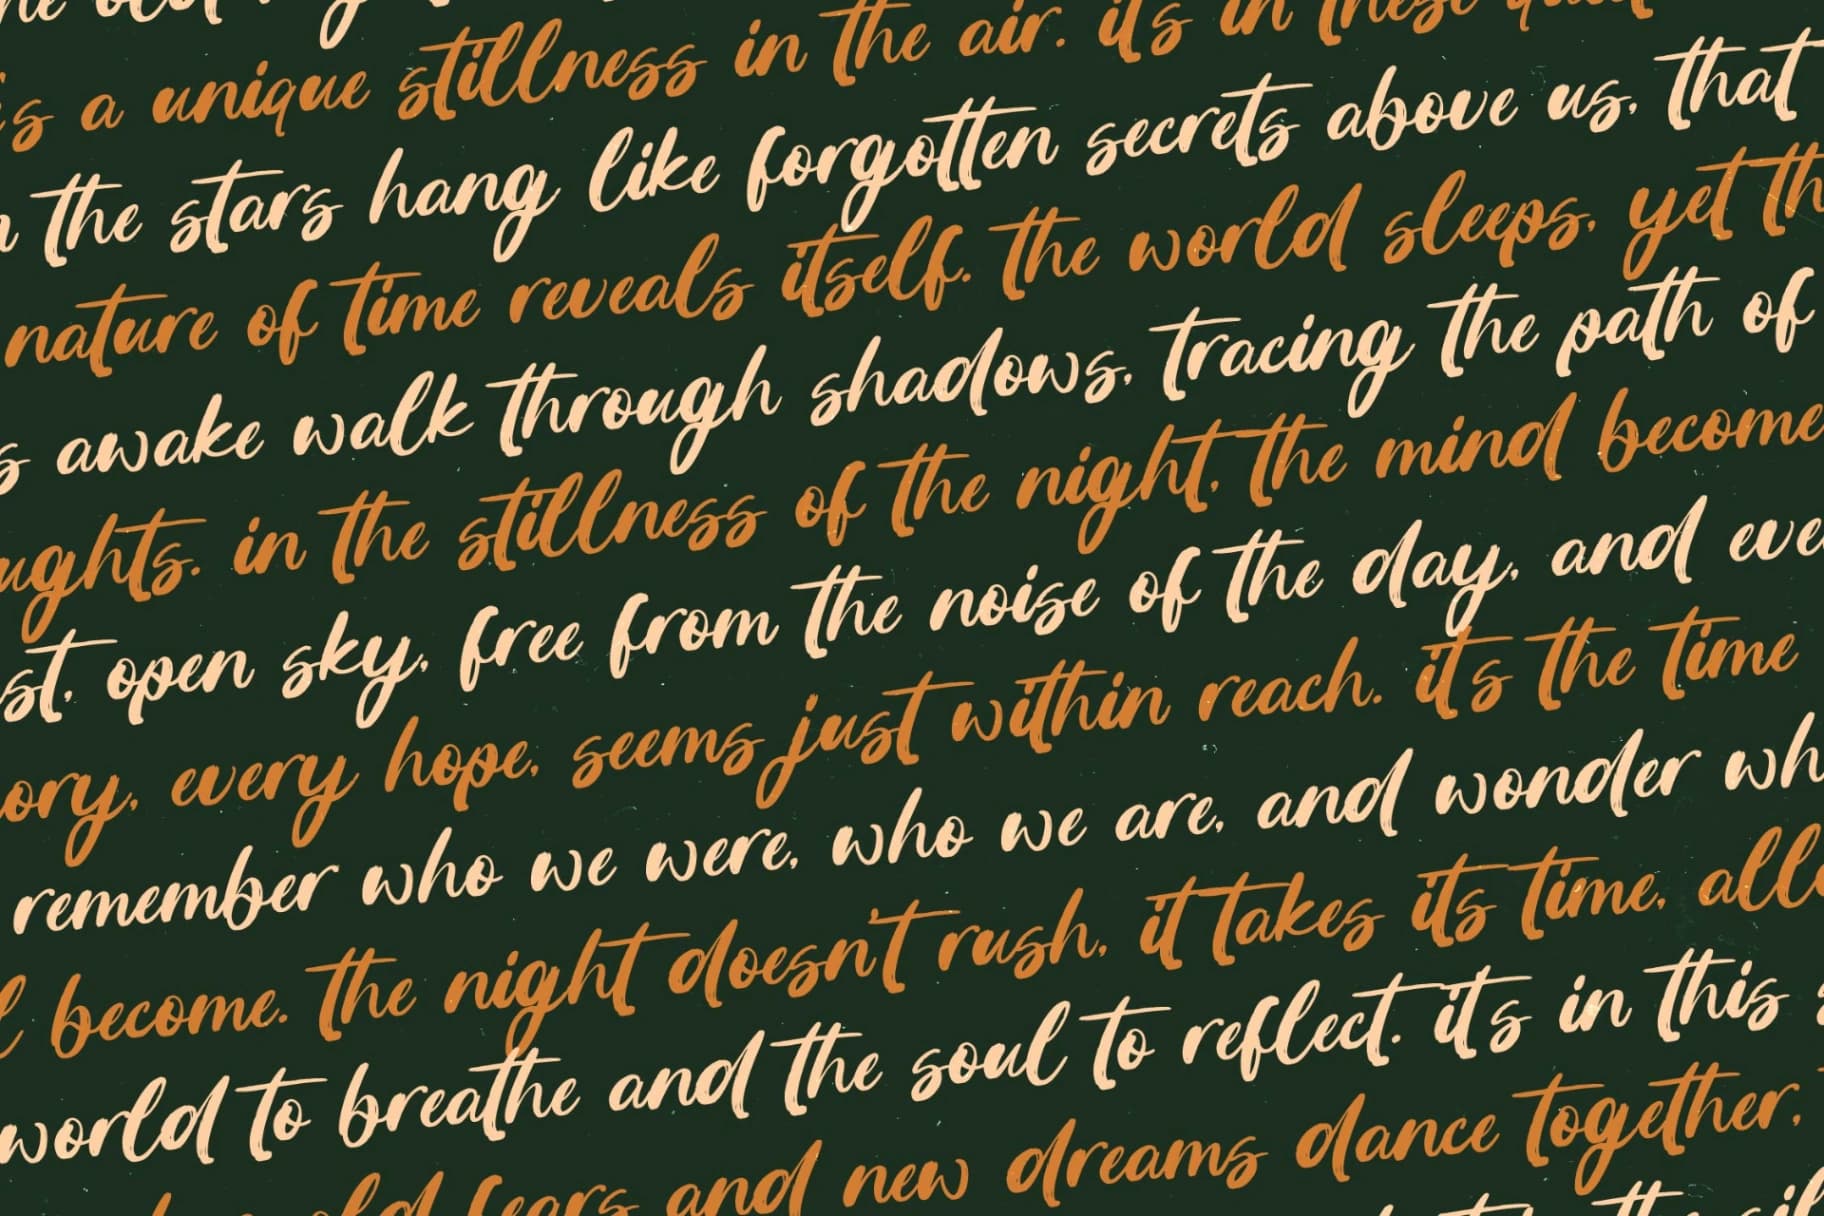 old
's a unique stillness in the air. it's in these
the stars hang like forgotten secrets above us, that
nature of time reveals itself. the world sleeps, yet th
s awake walk through shadows, tracing the path of
ughts. in the stillness of the night, the mind become
st, open sky, free from the noise of the day, and eve
ory, every hope, seems just within reach. it's the time
remember who we were, who we are, and wonder wh
l become. the night doesn't rush, it takes its time, all
world to breathe and the soul to reflect. it's in this
old fears and new dreams dance together,